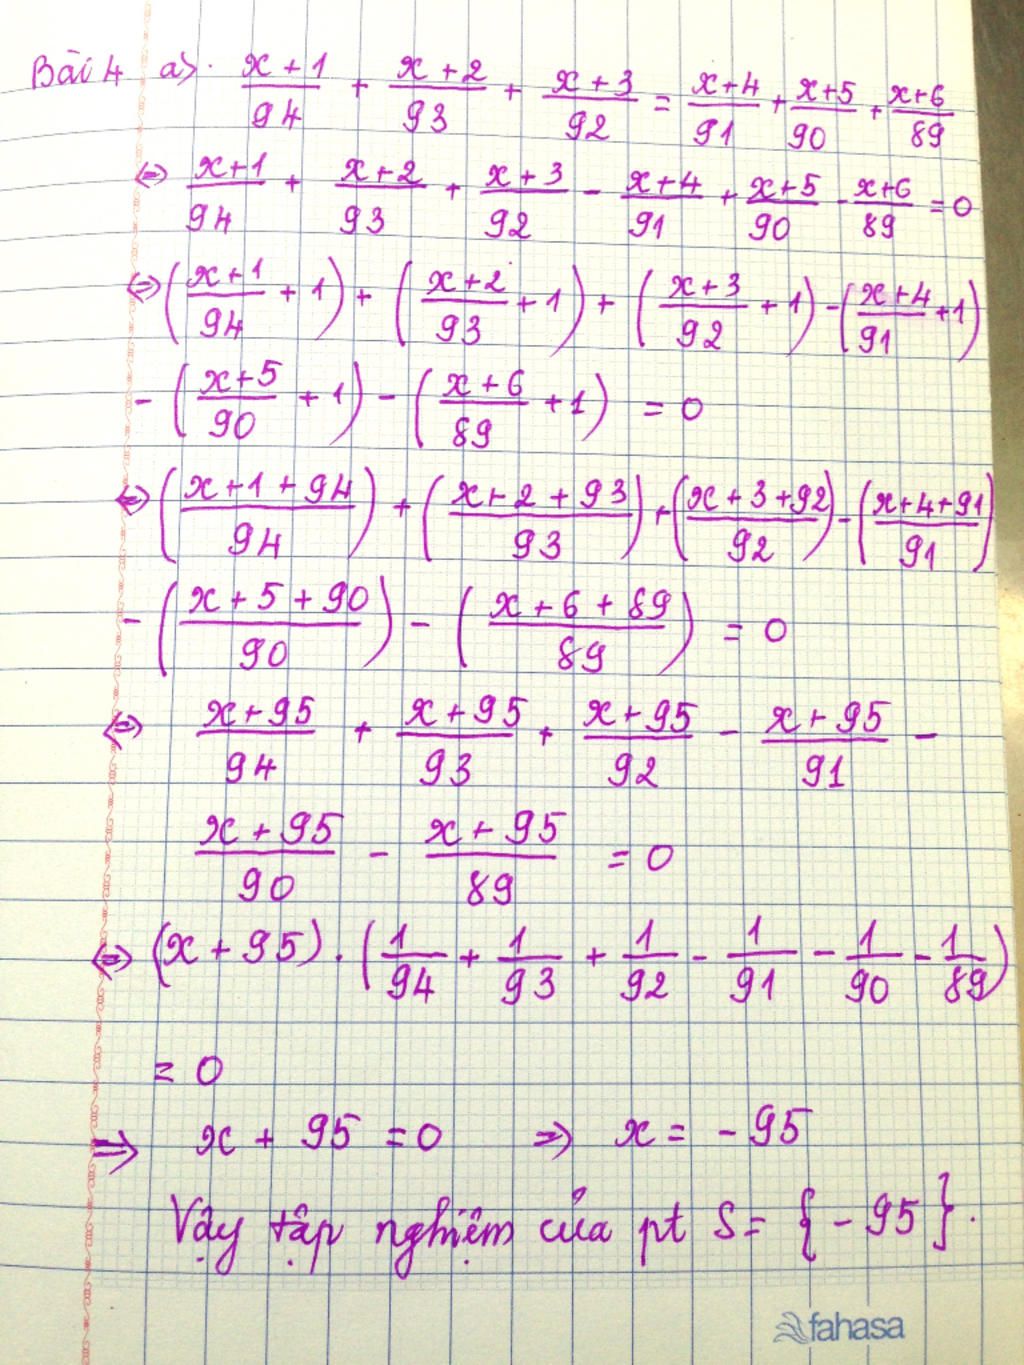 Bài 4 a). \frac{x+1}{94} + \frac{x+2}{93} + \frac{x+3}{92} = \frac{x+4}{91} + \frac{x+5}{90} + \frac{x+6}{89}
⇔ \frac{x+1}{94} + \frac{x+2}{93} + \frac{x+3}{92} - \frac{x+4}{91} + \frac{x+5}{90} - \frac{x+6}{89} = 0
⇔ (\frac{x+1}{94} + 1) + (\frac{x+2}{93} + 1) + (\frac{x+3}{92} + 1) - (\frac{x+4}{91} + 1)
- (\frac{x+5}{90} + 1) - (\frac{x+6}{89} + 1) = 0
⇔ (\frac{x+1+94}{94}) + (\frac{x+2+93}{93}) + (\frac{x+3+92}{92}) - (\frac{x+4+91}{91})
- (\frac{x+5+90}{90}) - (\frac{x+6+89}{89}) = 0
⇔ \frac{x+95}{94} + \frac{x+95}{93} + \frac{x+95}{92} - \frac{x+95}{91} -
\frac{x+95}{90} - \frac{x+95}{89} = 0
⇔ (x+95) . (\frac{1}{94} + \frac{1}{93} + \frac{1}{92} - \frac{1}{91} - \frac{1}{90} - \frac{1}{89})
= 0
⇒ x + 95 = 0 ⇒ x = -95
Vậy tập nghiệm của pt S = {-95}.
fahasa